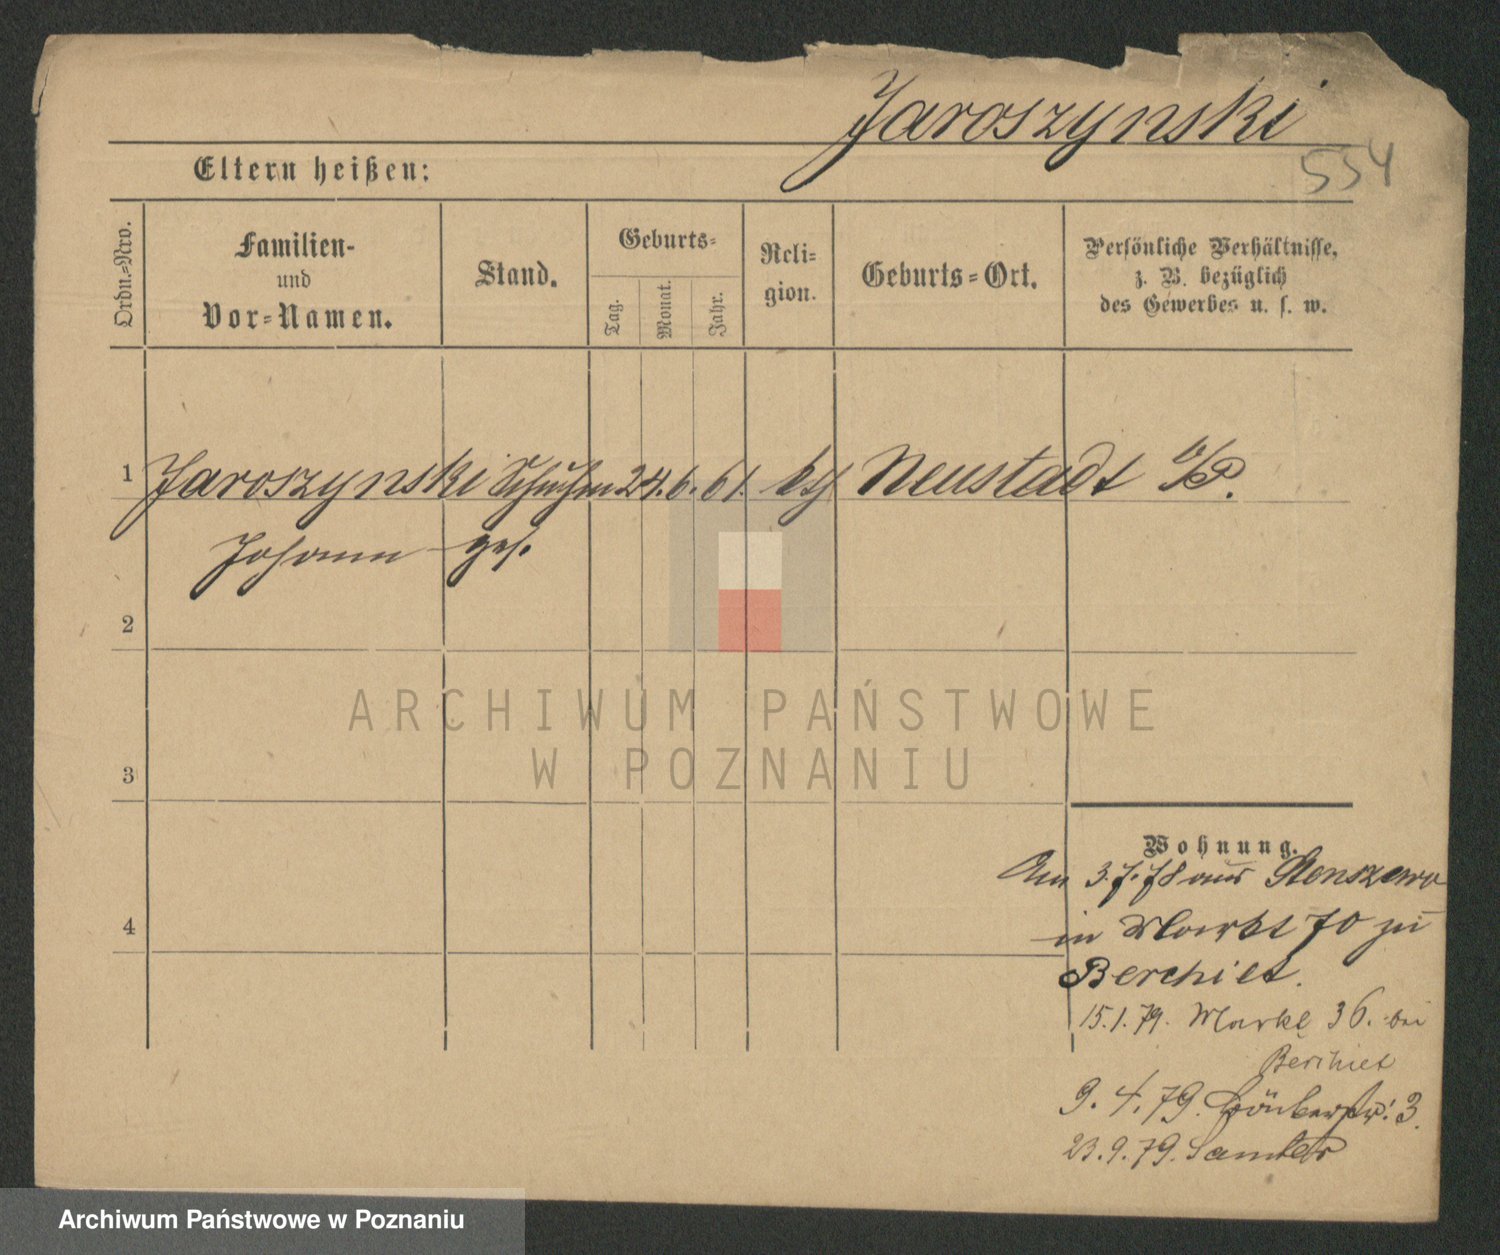 Jaroszynski
554
Eltern heißen:
Ordn.-Nro.
Familien-
und
Vor-Namen.
Stand.
Geburts-
Tag.
Monat.
Jahr.
Reli-
gion.
Geburts-Ort.
Persönliche Verhältnisse,
z. B. bezüglich
des Gewerbes u. s. w.
1 Jaroszynski 24. 6. 61. Neustadt b/P.
Johann ges.
2
3
4
Wohnung.
Am 3.7.78 aus Stenszewo
in Markt 70 zu
Berchiet.
15.1.79. Markt 36. bei
Berchiet
9.4.79. 3.
23.9.79. Samter
ARCHIWUM PAŃSTWOWE
W POZNANIU
Archiwum Państwowe w Poznaniu